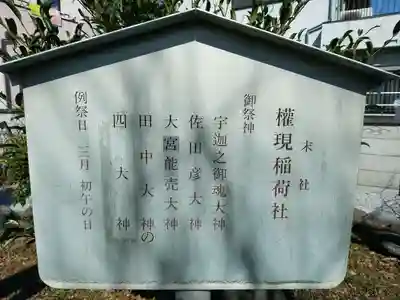 末社
權現稲荷社
御祭神
宇迦之御魂大神
佐田彦大神
大宮能売大神
田中大神の
四大神
例祭日 三月 初午の日